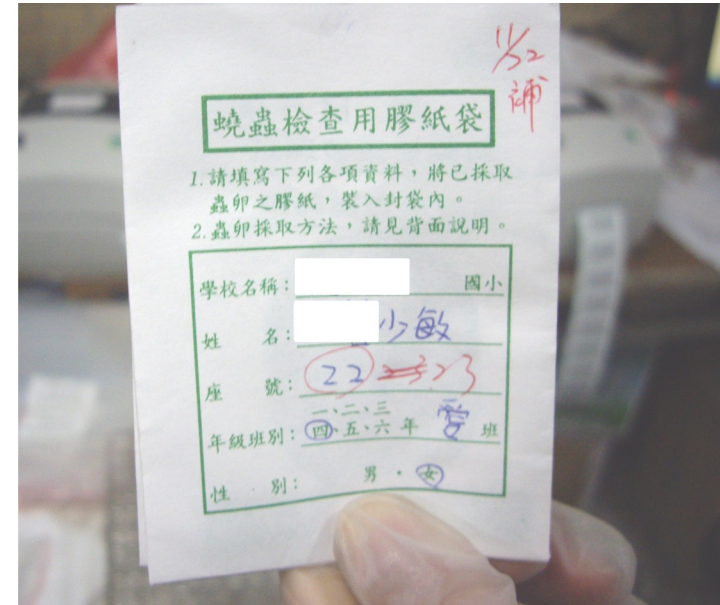 11/22
補
蟯蟲檢查用膠紙袋
1.請填寫下列各項資料，將已採取
蟲卵之膠紙，裝入封袋內。
2.蟲卵採取方法，請見背面說明。
學校名稱： 國小
姓 名： 少敏
座 號： 22 23
一、二、三
年級班別： 四、五、六 年 愛 班
性 別： 男・女